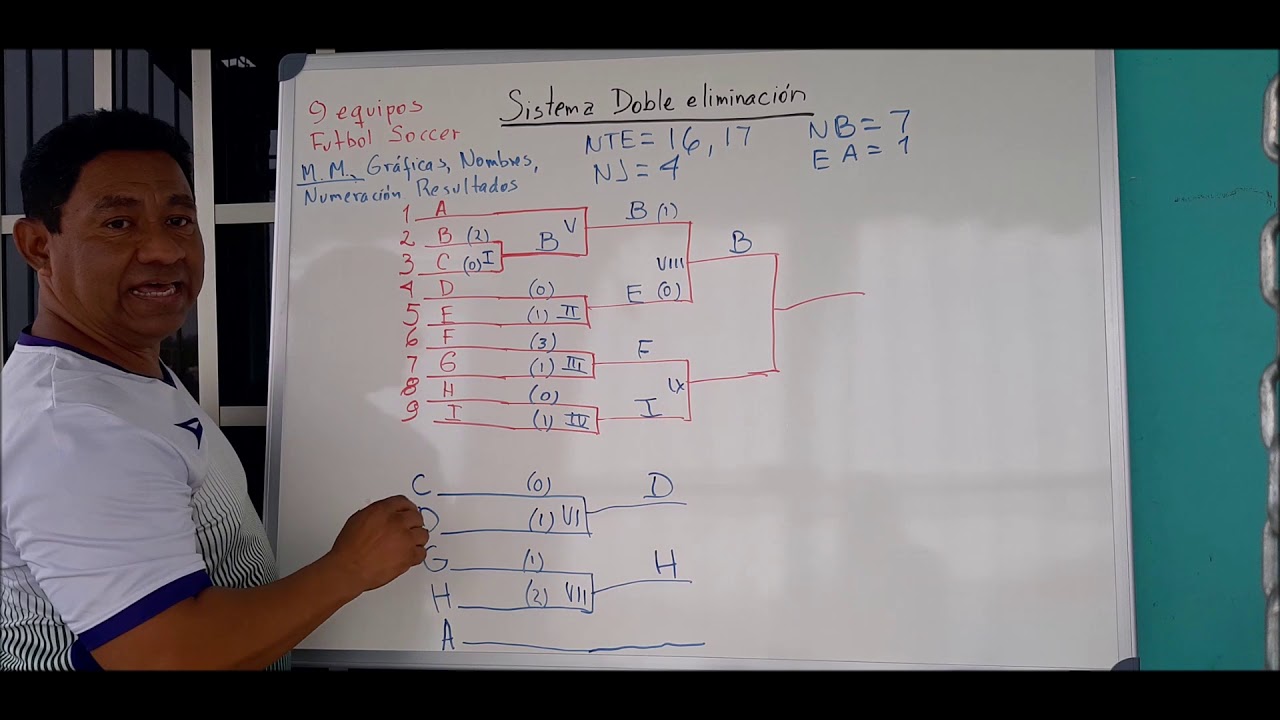 Sistema Doble eliminación
9 equipos
Futbol Soccer
M. M., Gráficas, Nombres,
Numeración Resultados
NTE = 16, 17
NJ = 4
NB = 7
EA = 1
1 A
2 B (2)
3 C (0) I
B V
4 D (0)
5 E (1) II
6 F (3)
7 G (1) III
8 H (0)
9 I (1) IV
B (1)
VIII
E (0)
F
IX
I
B
C (0)
D (1) VI
D
G (1)
H (2) VII
H
A